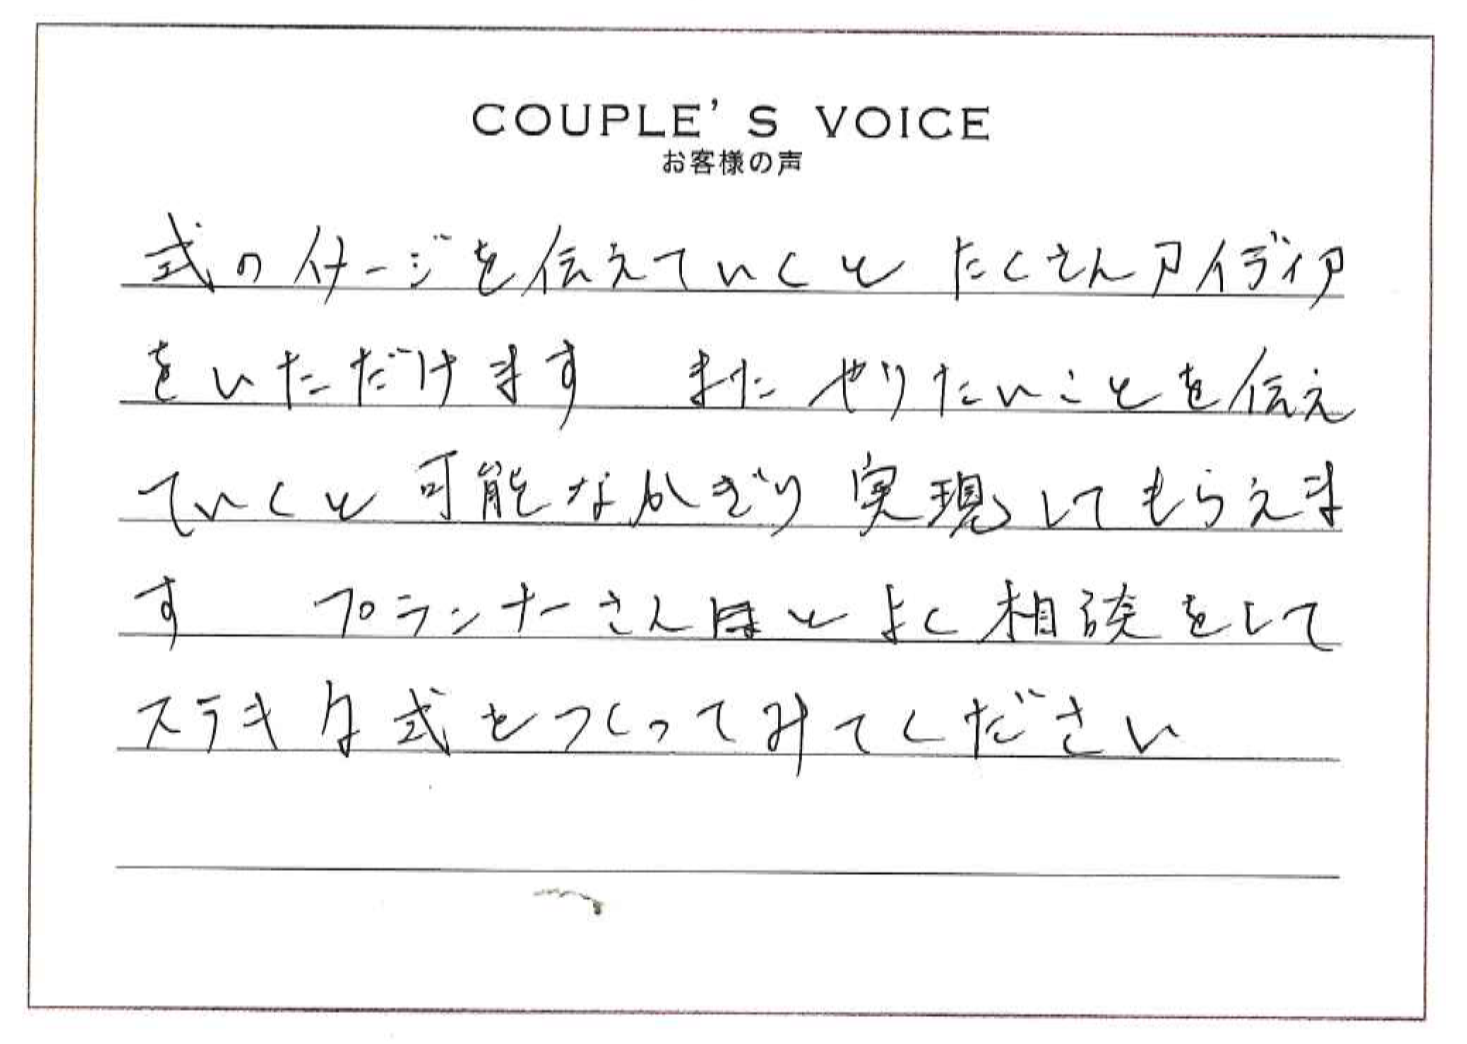 COUPLE'S VOICE
お客様の声
式のイメージを伝えていくと たくさんアイディア
をいただけます また やりたいことを伝え
ていくと 可能なかぎり 実現してもらえま
す プランナーさんと よく相談をして
ステキな式をつくってみてください